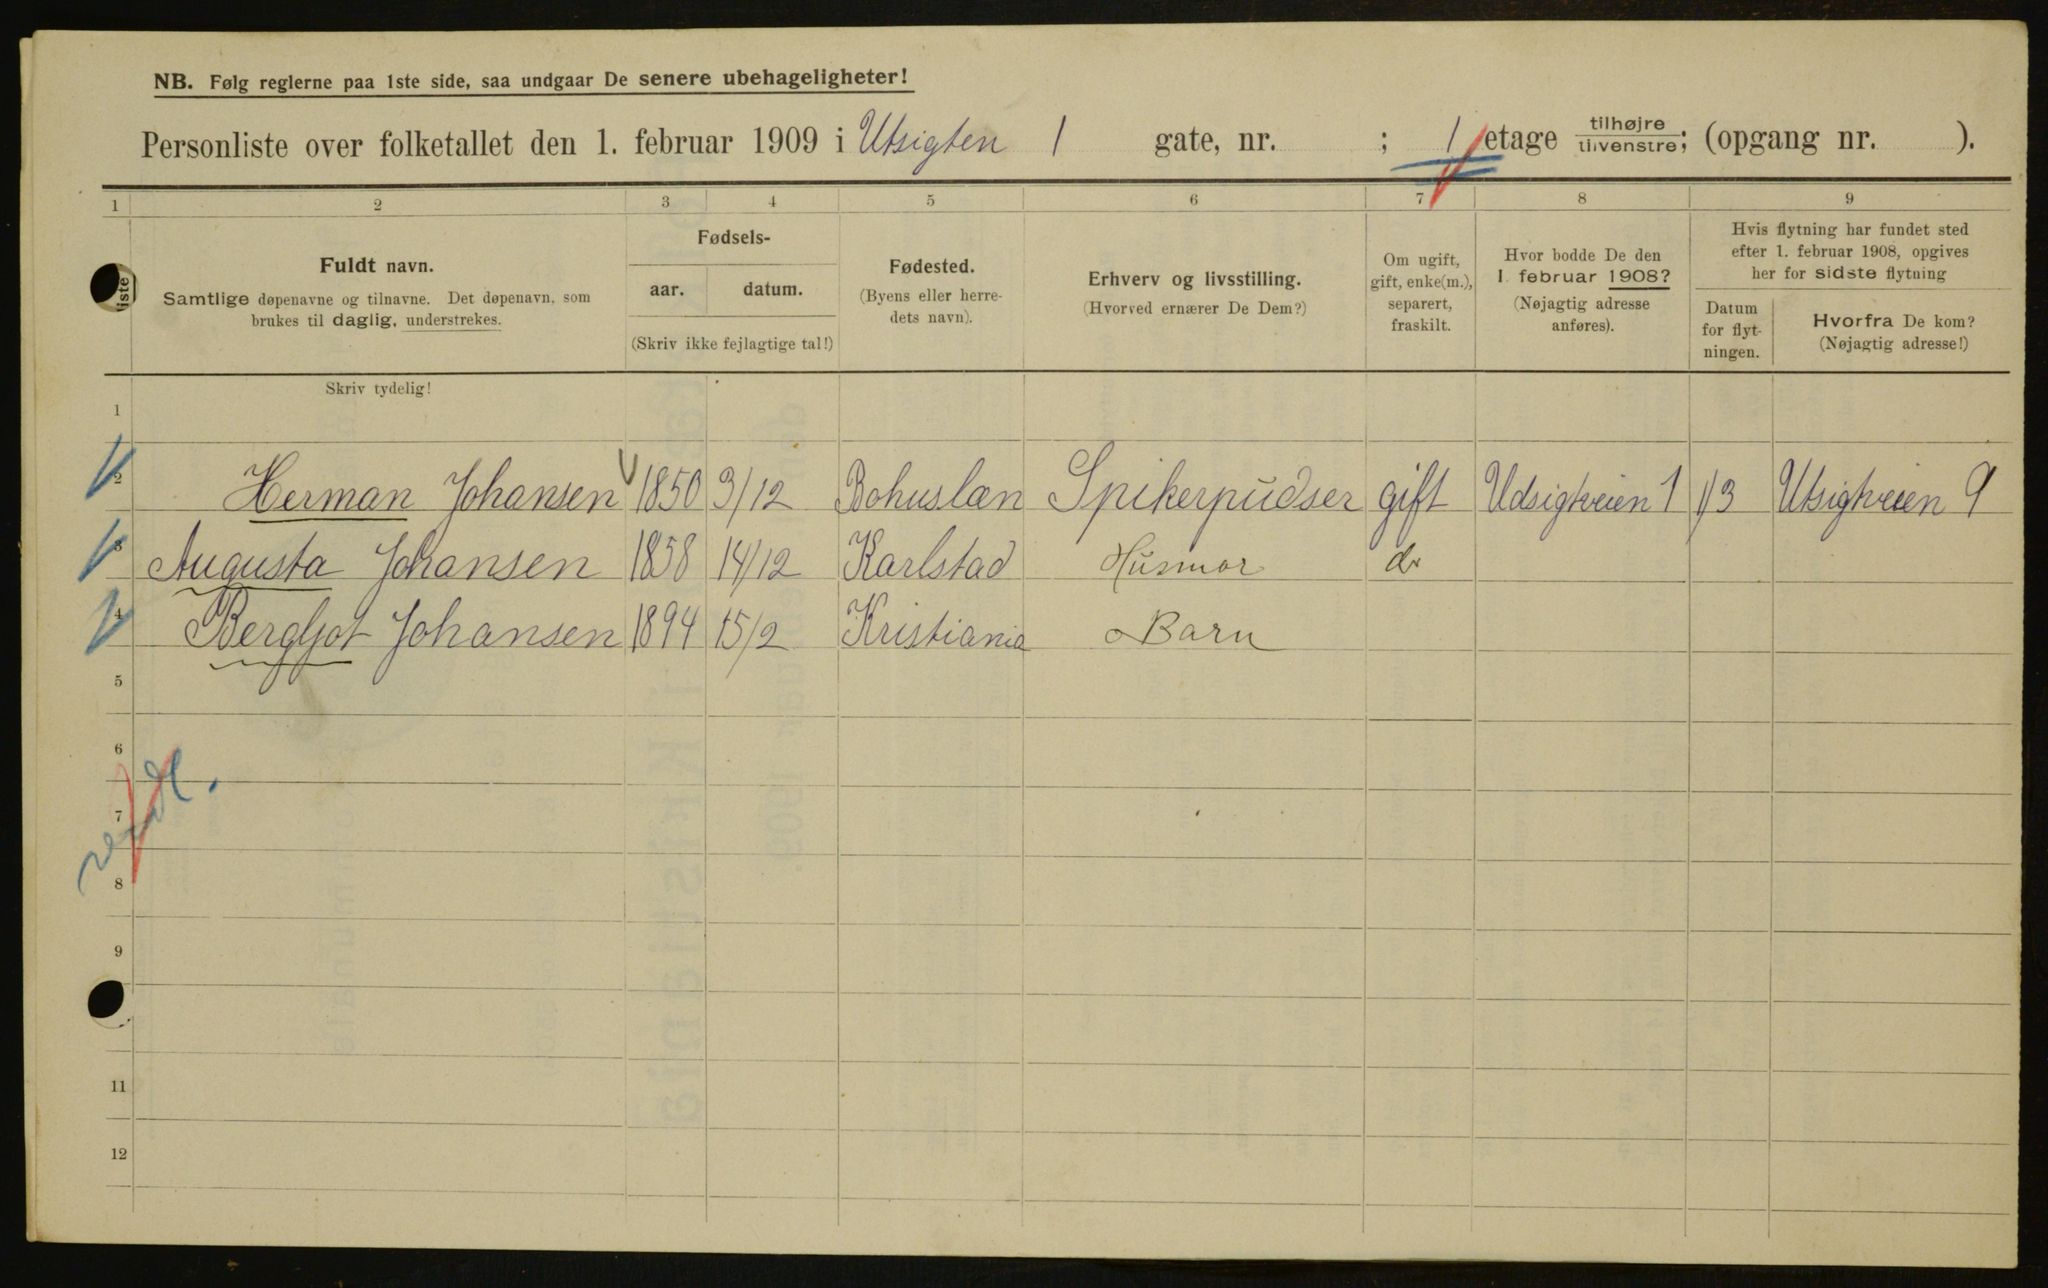 NB. Følg reglerne paa 1ste side, saa undgaar De senere ubehageligheter!
Personliste over folketallet den 1. februar 1909 i Utsigten 1 gate, nr. ; 1 etage tilhøjre tilvenstre; (opgang nr. ).
1 2 3 4 5 6 7 8 9
iste
Fuldt navn.
Samtlige døpenavne og tilnavne. Det døpenavn, som
brukes til daglig, understrekes.
Fødsels-
aar. datum.
(Skriv ikke fejlagtige tal!)
Fødested.
(Byens eller herre-
dets navn).
Erhverv og livsstilling.
(Hvorved ernærer De Dem?)
Om ugift,
gift, enke(m.),
separert,
fraskilt.
Hvor bodde De den
1. februar 1908?
(Nøjagtig adresse
anføres).
Hvis flytning har fundet sted
efter 1. februar 1908, opgives
her for sidste flytning
Datum
for flyt-
ningen.
Hvorfra De kom?
(Nøjagtig adresse!)
Skriv tydelig!
1
2 Herman Johansen 1850 3/12 Bohuslæn Spikerpudser gift Udsigtveien 1 1/3 Utsigtveien 9
3 Augusta Johansen 1858 14/12 Karlstad Husmor do
4 Bergljot Johansen 1894 15/2 Kristiania Barn
5
6
7
8
9
11
12